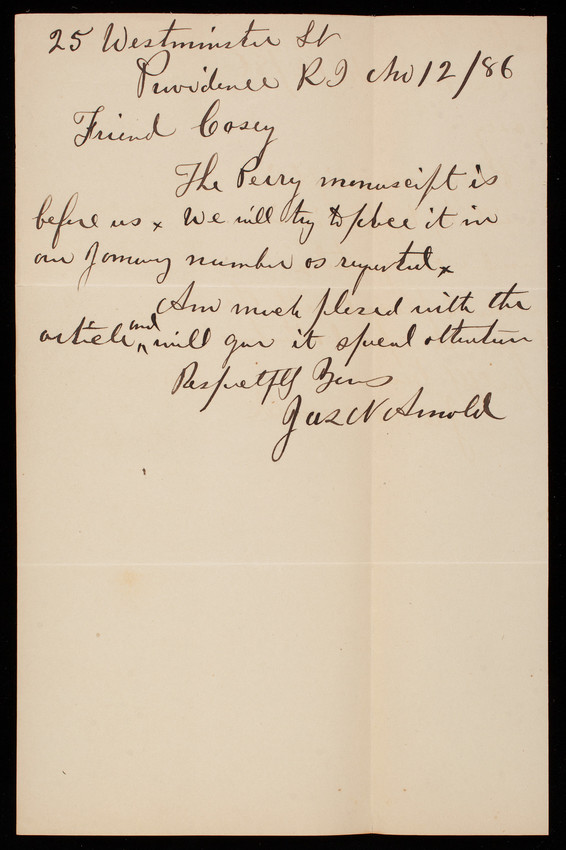 25 Westminster St
Providence R I Nov 12/86
Friend Casey
The Perry manuscript is
before us x We will try to place it in
our January number as requested x
Am much plesed with the
article and will give it special attention
Respectfly Yours
Jas N Arnold